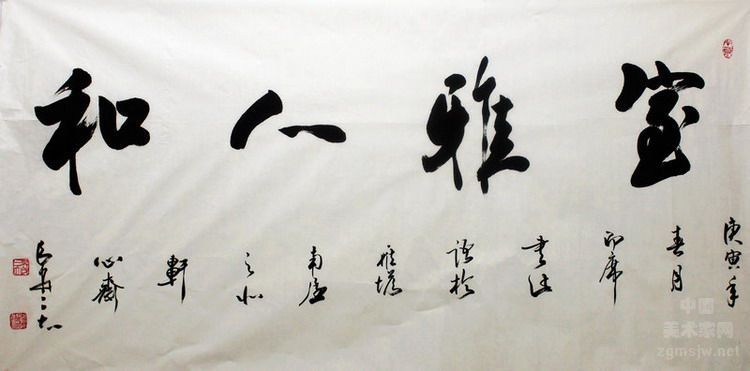 室雅人和
庚寅年
春月
即席
書法
語於
南
之
軒
心齋
中国
美术家网
zgmsjw.net